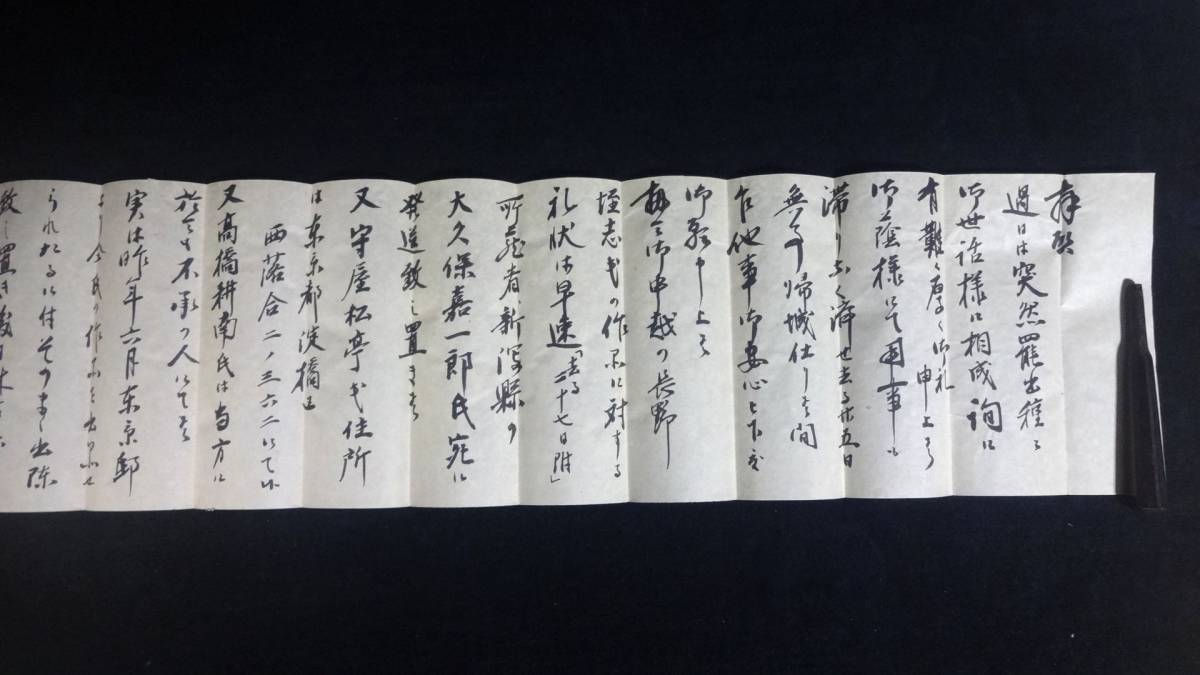 拝啓
過日は突然罷出種々
御世話様に相成詢に
有難く厚く御礼申上候
御蔭様にて用事も
滞りなく済せ去る廿五日
無事帰城仕り候間
乍他事御安心被下度
御願申上候
扨而御申越の長野
垣志氏の作品に対する
礼状は早速「去る二十七日附」
所蔵者、新潟縣の
大久保嘉一郎氏宛に
発送致し置き候
又守屋松亭氏住所
は東京都淀橋区
西落合二ノ三六二にて候
又高橋耕南氏は当方に
於ても不承の人にて候
実は昨年六月東京郵
より全氏の作品を
られたるに付そのまゝ出陳
致し置き